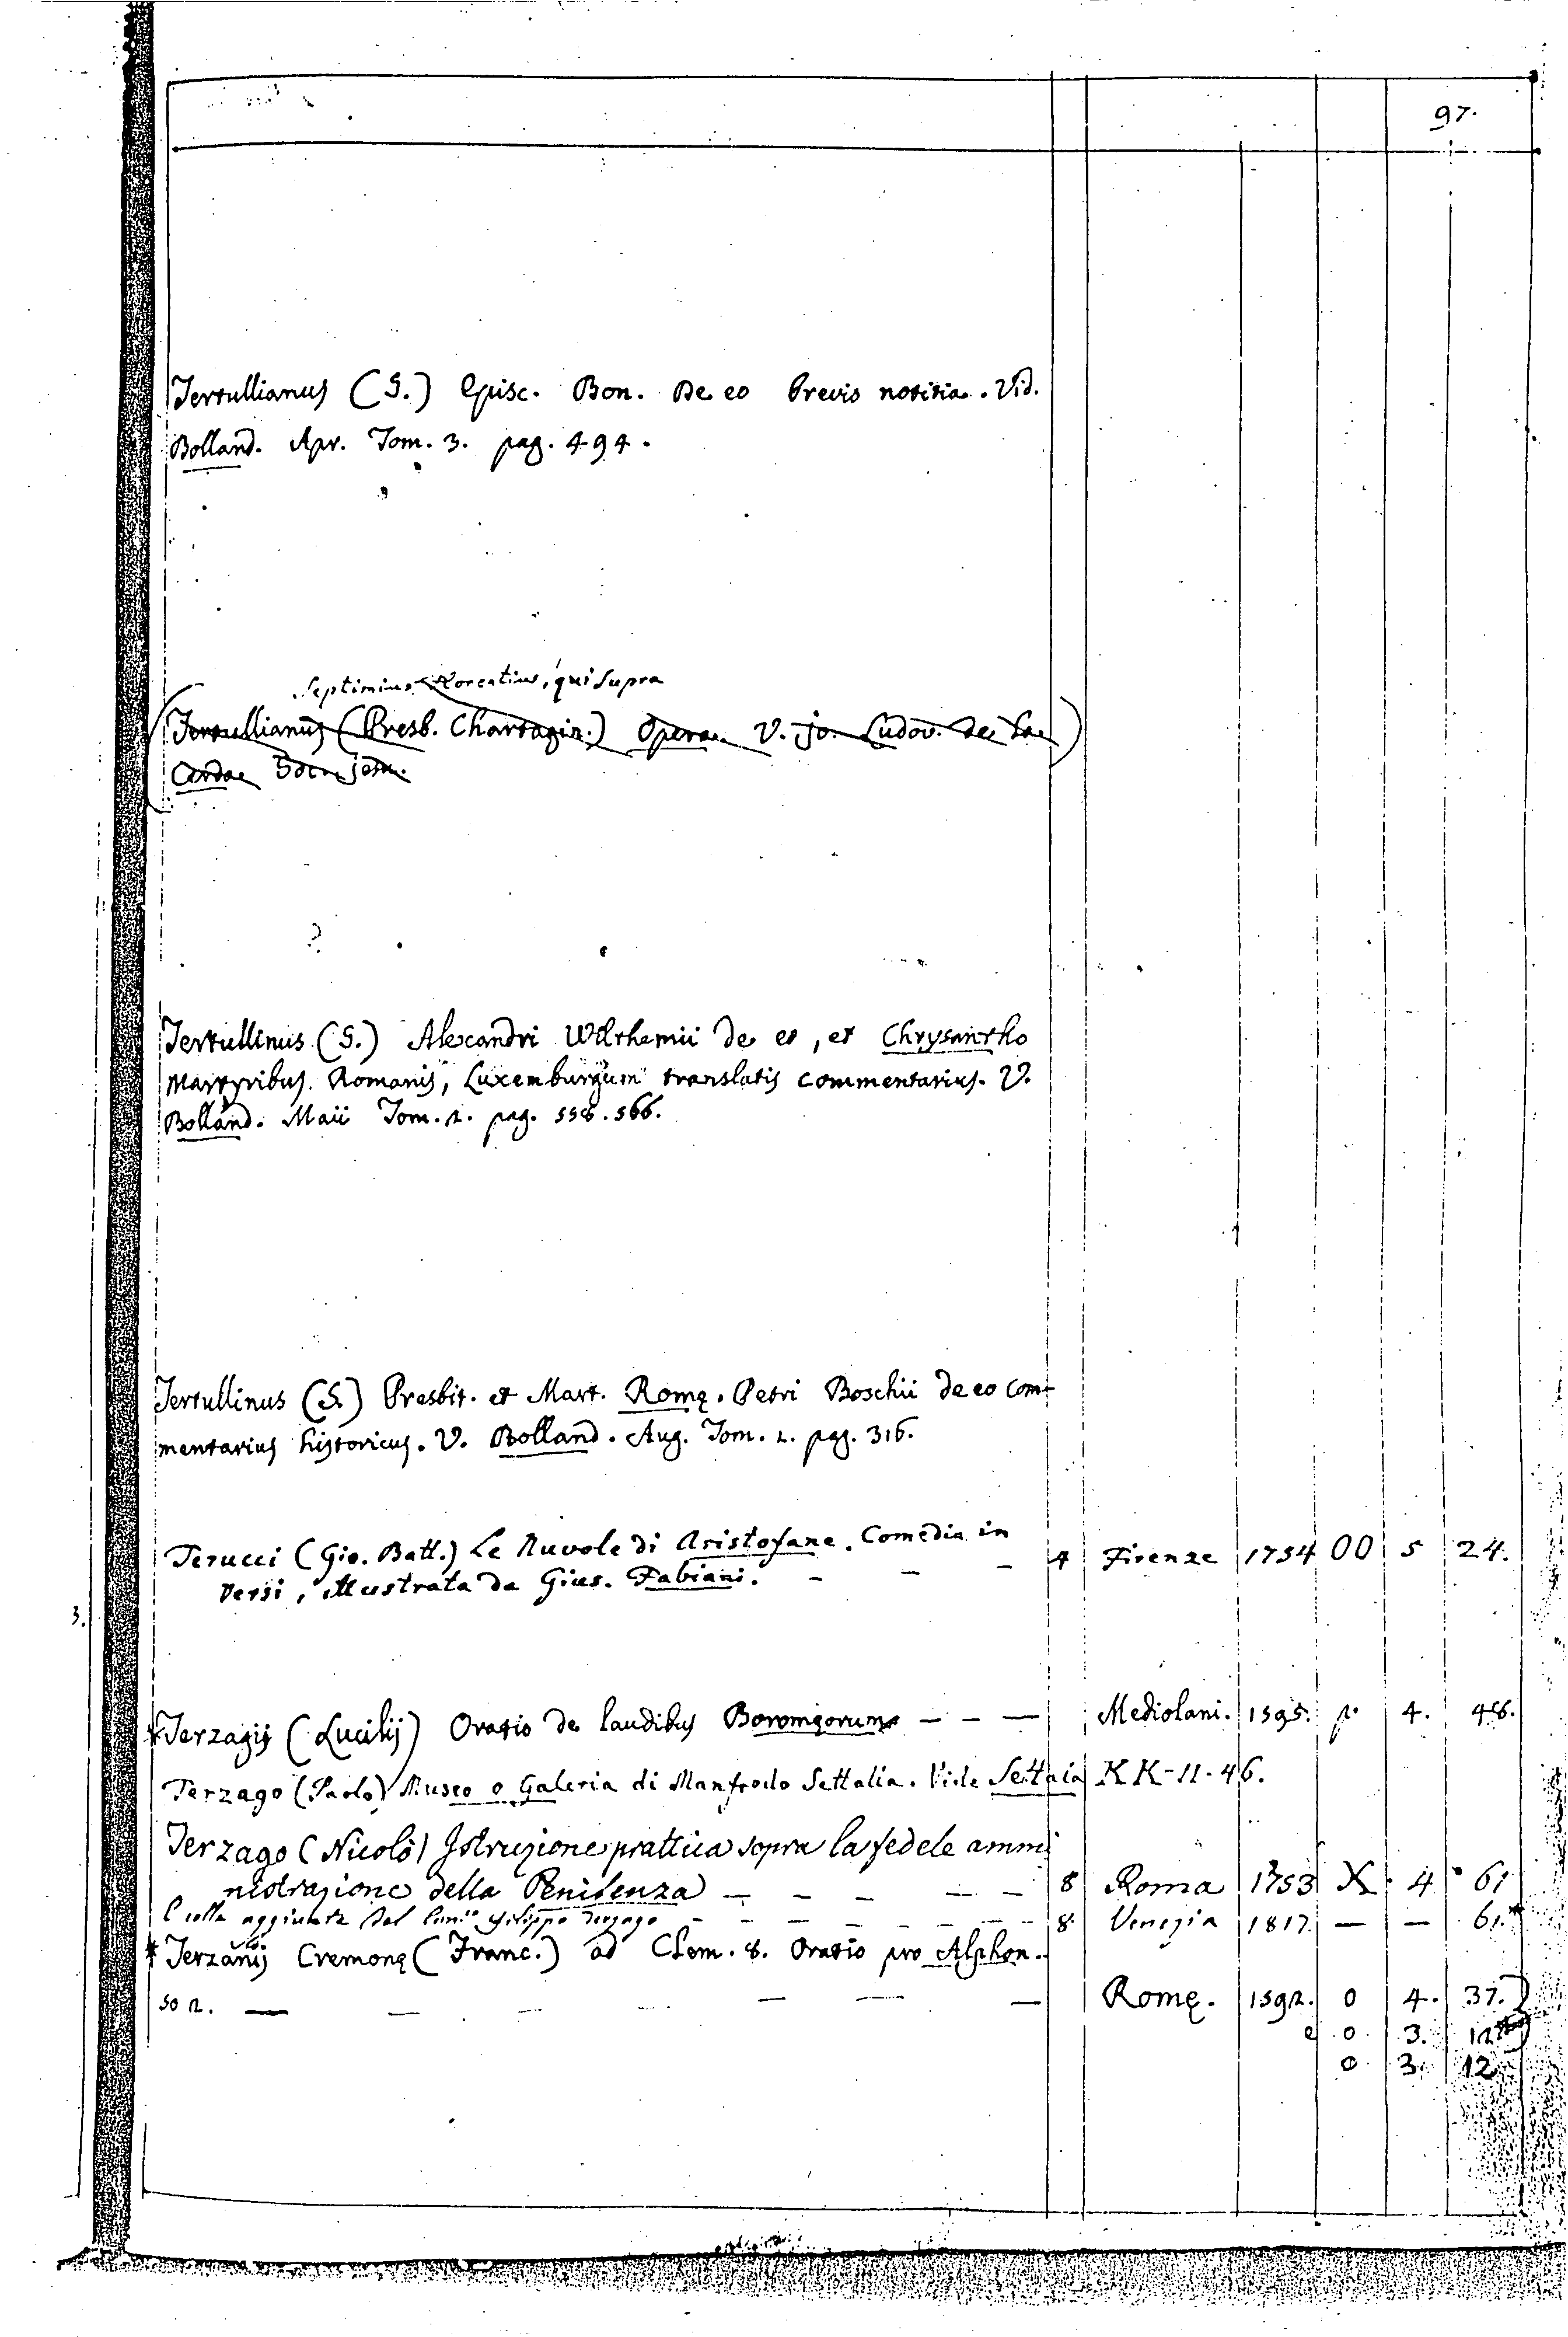 97.
Tertullianus (S.) Episc. Bon. De eo brevis notitia. Vid.
Bolland. Apr. Tom. 3. pag. 494.
Septimius Florentius, qui supra
Tertullianus (Presb. Chartagin.) Opera. V. Jo. Ludov. de la
Cerda Soc. Jesu.
Tertullinus (S.) Alexandri Wilthemii de eo, et Chrysantho
Martyribus Romanis, Luxemburgum translatis commentarius. V.
Bolland. Maii Tom. 2. pag. 558. 566.
Tertullinus (S.) Presbit. et Mart. Romę. Petri Boschii de eo com-
mentarius historicus. V. Bolland. Aug. Tom. 2. pag. 316.
Terucci (Gio. Batt.) Le Nuvole di Aristofane. Comedia in
versi, illustrata da Gius. Fabiani. - - - 4 Firenze 1754 OO 5 24.
3.
* Terzagij (Lucilij) Oratio de laudibus Boromęorum — — — Mediolani. 1595. p. 4. 48.
Terzago (Paolo) Museo o Galeria di Manfredo Settalia. Vide Settala KK-11-46.
Terzago (Nicolò) Istruzione prattica sopra la fedele ammi
nistrazione della Penitenza — — — — — 8 Roma 1753 X 4 61
E colle aggiunte del Filippo Terzago - - - - - - - 8. Venezia 1817. — — 61.*
* Terzanij Cremonę (Franc.) ad Clem. 8. Oratio pro Alphon.
so 2. — — — — — — — Romę. 1592. O 4. 37.
e o. 3. 12
O 3. 12